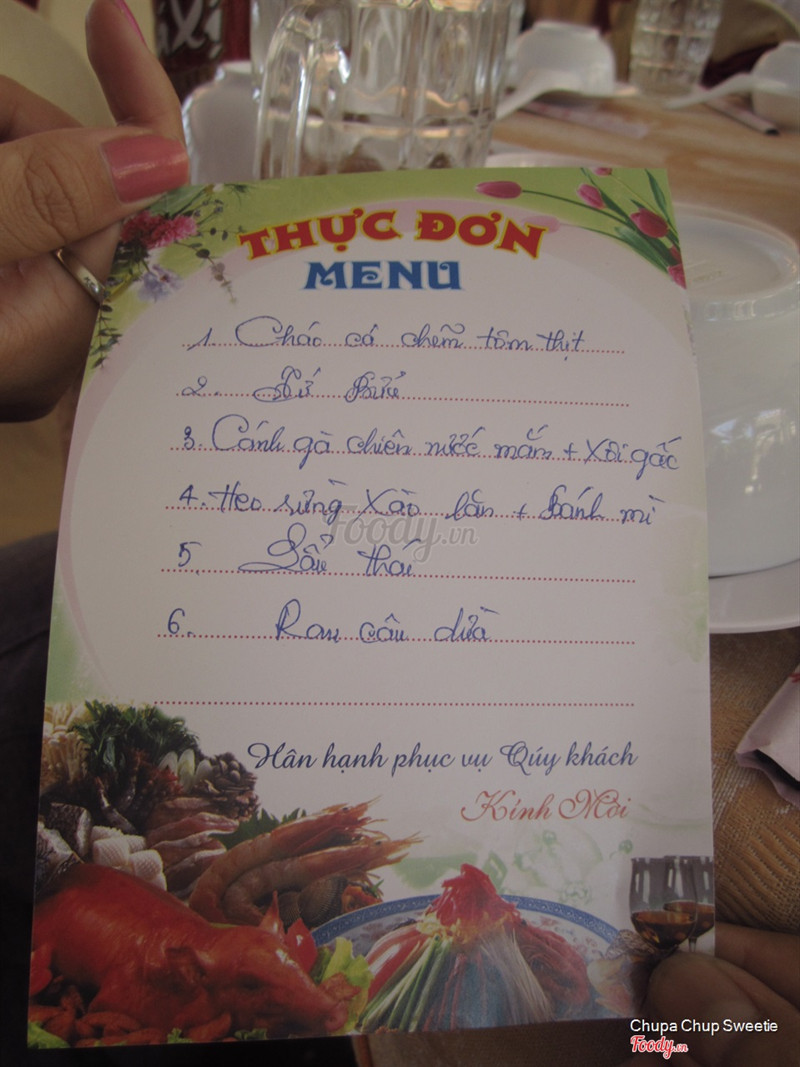 THỰC ĐƠN
MENU
1. Cháo cá chẽm tôm thịt
2. Tứ Bửu
3. Cánh gà chiên nước mắm + Xôi gấc
4. Heo rừng xào lăn + Bánh mì
5. Lẩu thái
6. Rau câu dừa
Hân hạnh phục vụ Qúy khách
Kính Mời
Foody.vn
Chupa Chup Sweetie
Foody.vn